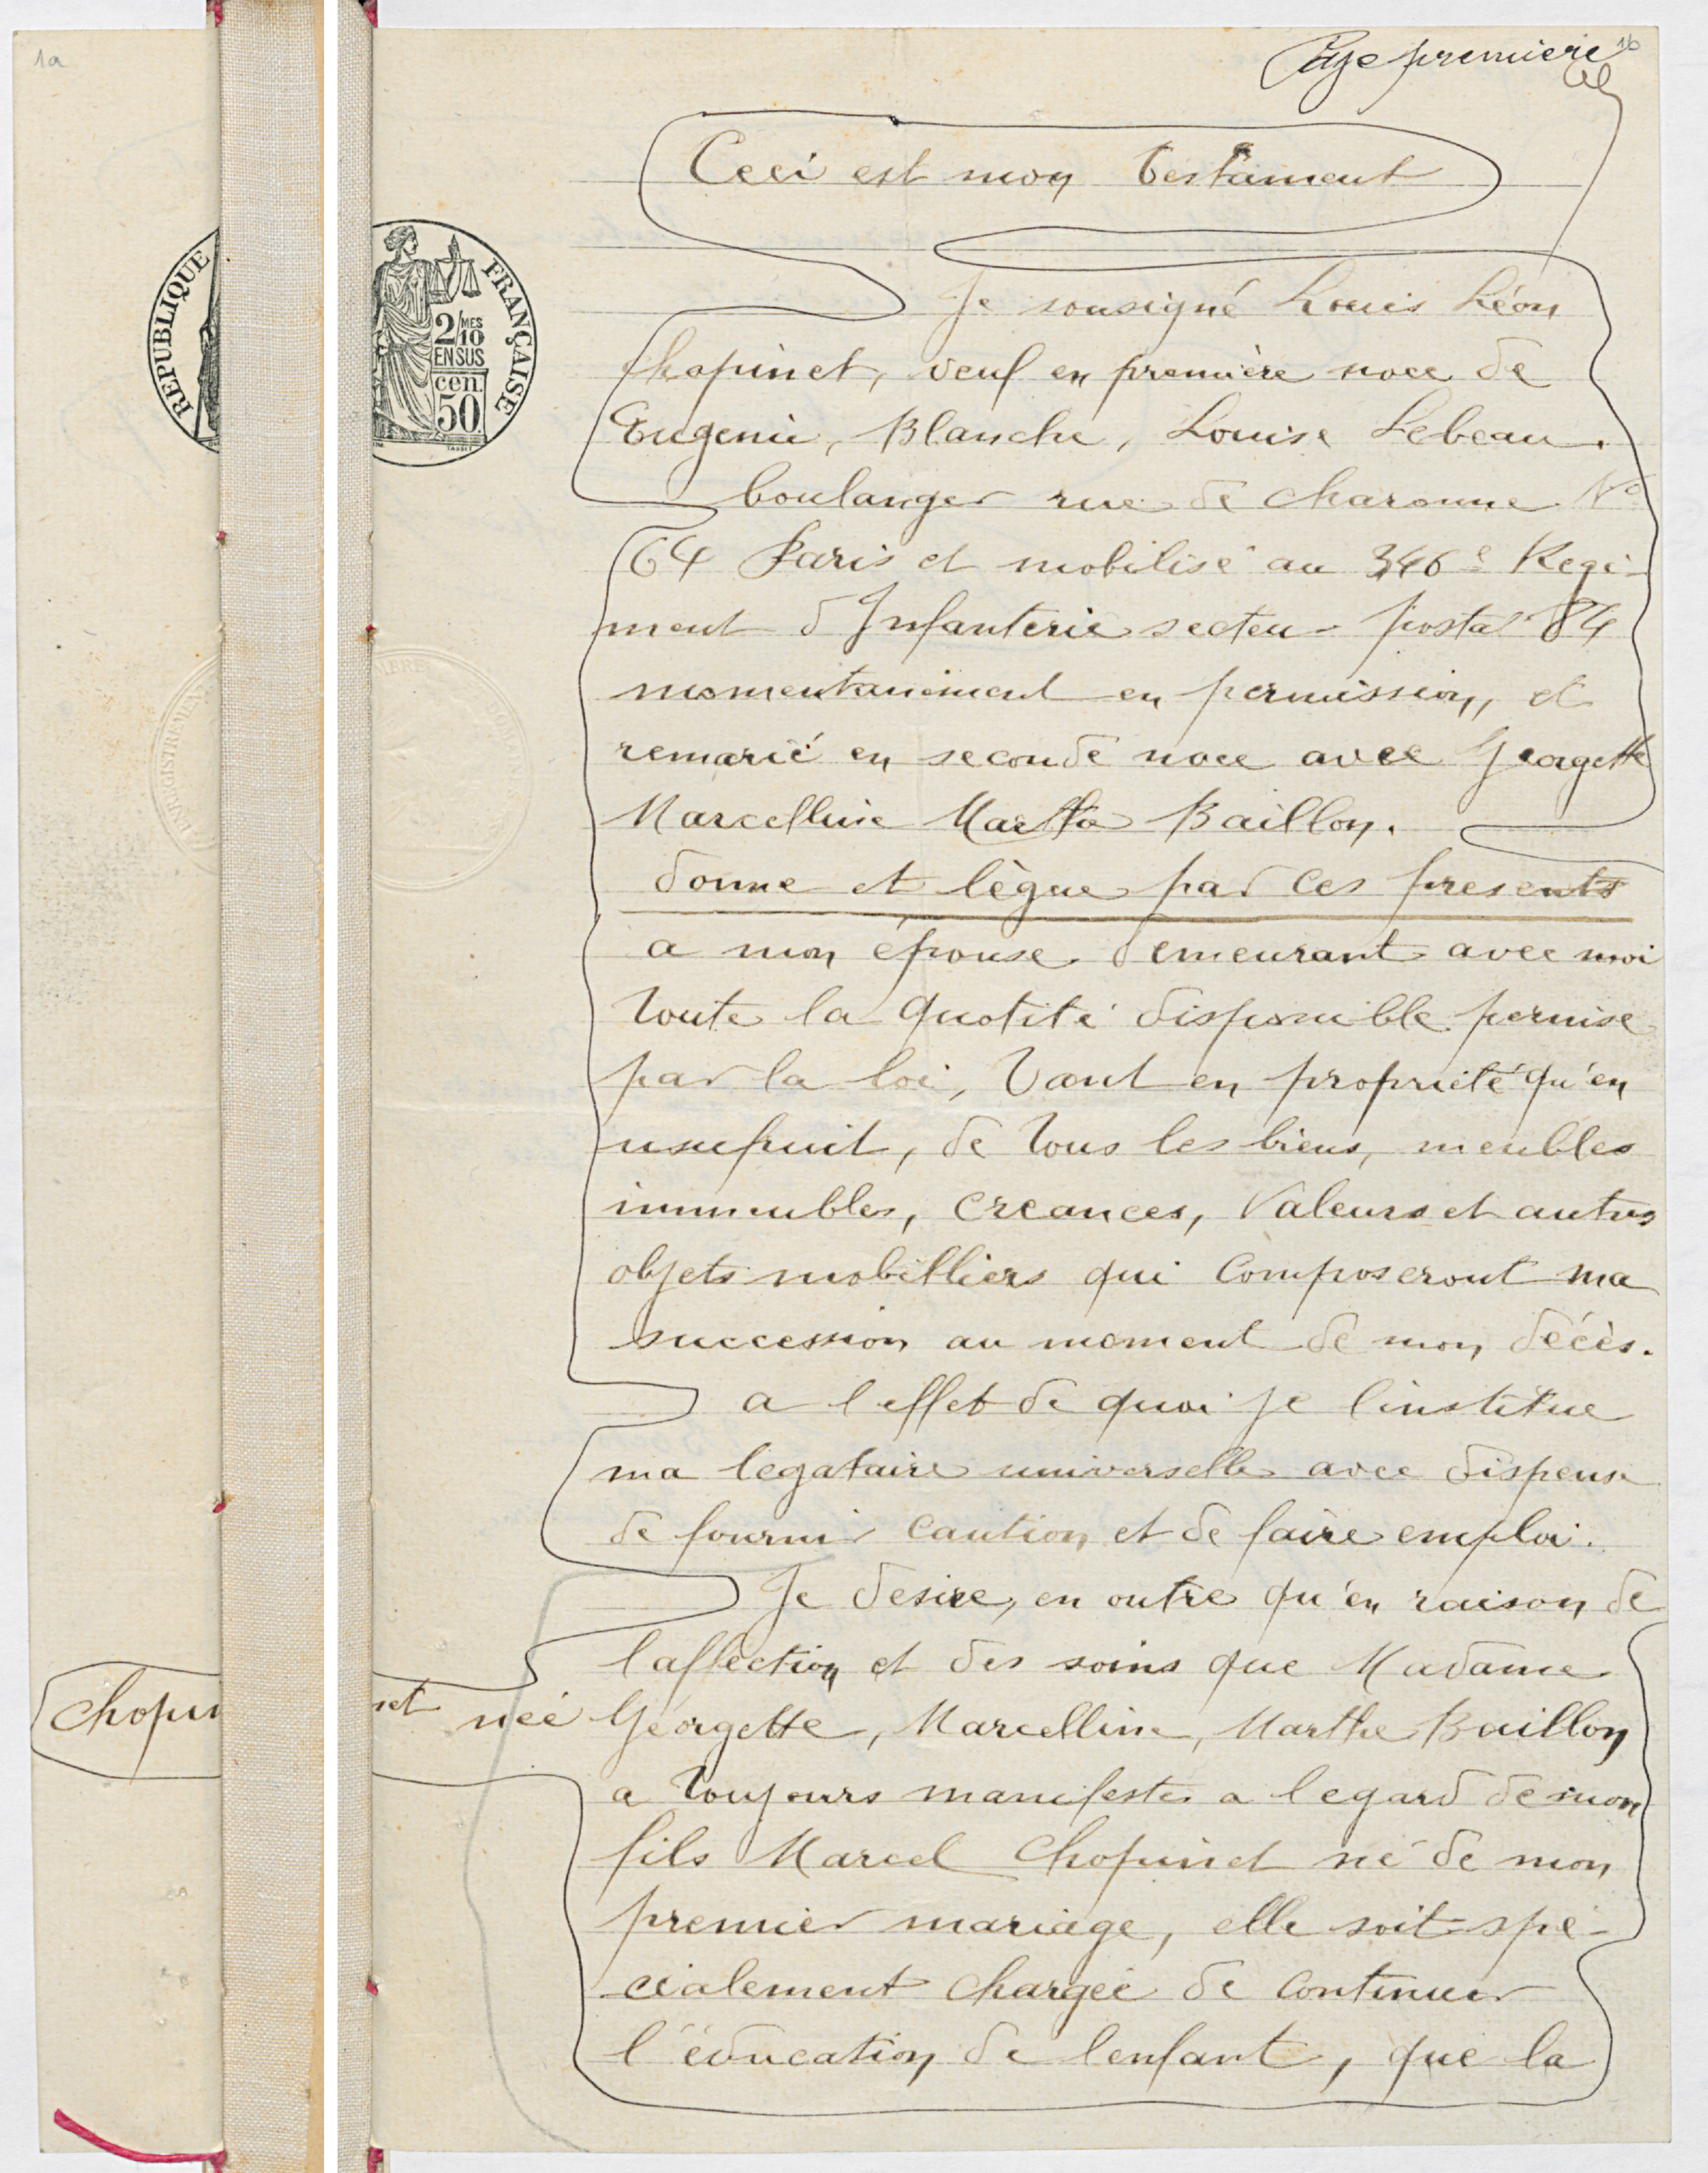 1a
1b
Page première
Ceci est mon testament
Je sousigné Louis Léon
Chopinet, veuf en première noce de
Eugenie, Blanche, Louise Lebeau.
boulanger rue de charonne No
64 Paris et mobilisé au 346e Regi-
ment d Infanterie secteur postal 84
momentanément en permission, et
remarié en seconde noce avec Georgette
Marcelline Marthe Baillon.
donne et lègue par ces presents
a mon épouse demeurant avec moi
toute la quotité disponible permise
par la loi, tant en propriété qu'en
usufruit, de tous les biens, meubles
immeubles, creances, valeurs et autres
objets mobilliers qui composeront ma
succession au moment de mon décès.
a l effet de quoi je l'institue
ma legataire universelle avec dispense
de fournir caution et de faire emploi.
Je desire, en outre qu'en raison de
l affection et des soins que Madame
Chopinet née Georgette, Marcelline, Marthe Baillon
a toujours manifestés a legard de mon
fils Marcel Chopinet né de mon
premier mariage, elle soit spé-
cialement chargée de continuer
l'éducation de lenfant, que la
REPUBLIQUE FRANÇAISE
2/10 MES
EN SUS
50 cen.